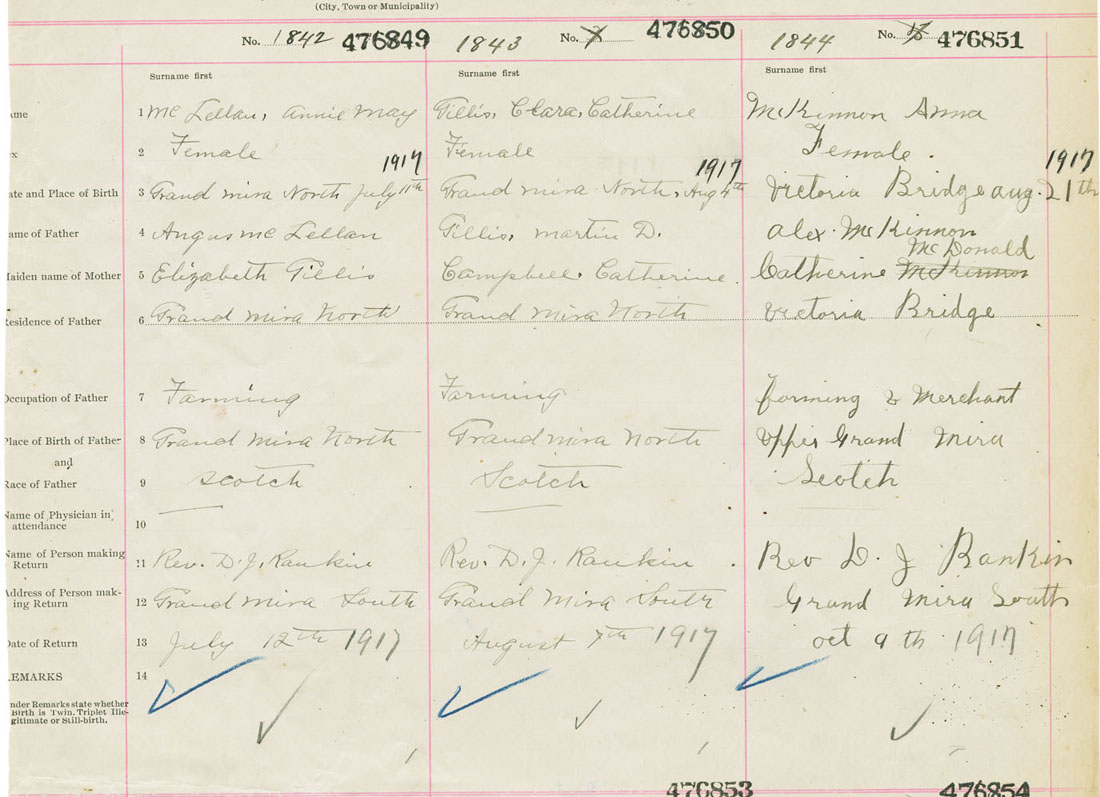 (City, Town or Municipality)
No. 1842 476849 1843 No. 7 476850 1844 No. 476851
Surname first Surname first Surname first
ame 1 Mc Lellan, Annie May Gillis, Clara, Catherine McKinnon Anna
ex 2 Female Female Female.
1917 1917 1917
ate and Place of Birth 3 Grand Mira North July 11th Grand Mira North, Aug 4th Victoria Bridge Aug. 21th
ame of Father 4 Angus Mc Lellan Gillis, Martin D. Alex McKinnon
McDonald
Maiden name of Mother 5 Elizabeth Gillis Campbell, Catherine. Catherine McKinnon
Residence of Father 6 Grand Mira North Grand Mira North Victoria Bridge
Occupation of Father 7 Farming Farming farming & Merchant
Place of Birth of Father 8 Grand Mira North Grand Mira North Upper Grand Mira
and
Race of Father 9 Scotch Scotch Scotch
Name of Physician in attendance 10
Name of Person making Return 11 Rev. D. J. Rankin Rev. D. J. Rankin Rev D. J Rankin
Address of Person mak-
ing Return 12 Grand Mira South Grand Mira South Grand Mira South
Date of Return 13 July 12th 1917 August 7th 1917 Oct 9th 1917
REMARKS 14
nder Remarks state whether
Birth is Twin, Triplet Ille-
gitimate or Still-birth.
476853 476854